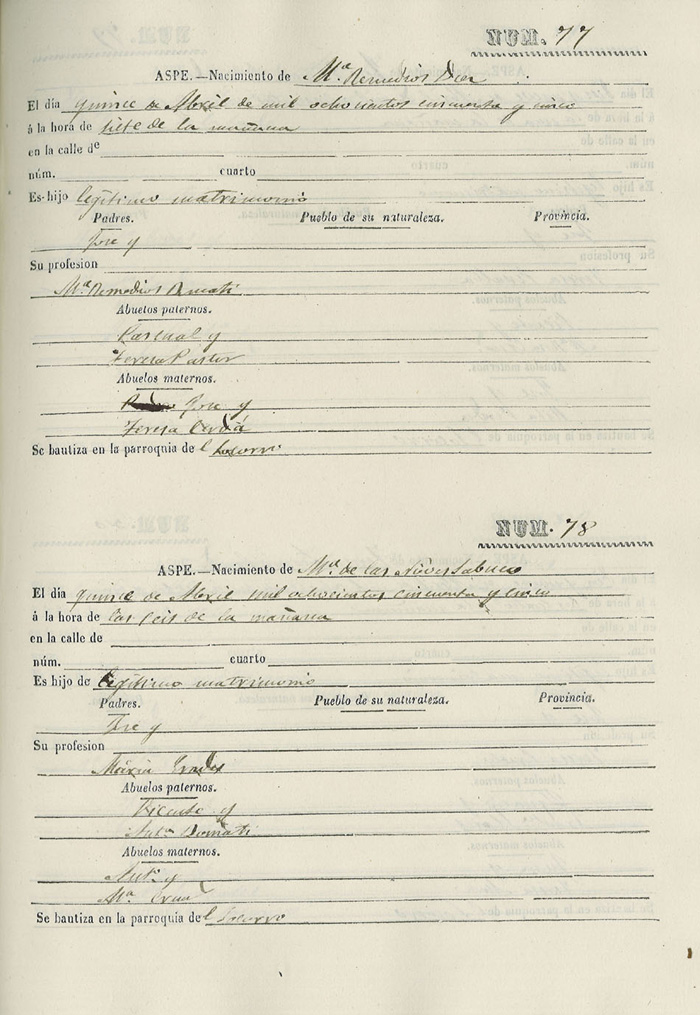 NUM. 77
ASPE.—Nacimiento de Mª Remedios Dier
El día quince de Abril de mil ochocientos cincuenta y cinco
á la hora de siete de la mañana
en la calle de
núm. cuarto
Es hijo legítimo matrimonio
Padres. Pueblo de su naturaleza. Provincia.
Jose y
Su profesion
Mª Remedios
Abuelos paternos.
Pascual y
Teresa Pastor
Abuelos maternos.
Jose y
Teresa Cerdá
Se bautiza en la parroquia del Socorro
NUM. 78
ASPE.—Nacimiento de Mª de las Nieves Sabuco
El día quince de Abril mil ochocientos cincuenta y cinco
á la hora de las seis de la mañana
en la calle de
núm. cuarto
Es hijo de legítimo matrimonio
Padres. Pueblo de su naturaleza. Provincia.
Jose y
Su profesion
Maria
Abuelos paternos.
Vicente y
Antª
Abuelos maternos.
Antº y
Mª
Se bautiza en la parroquia del Socorro